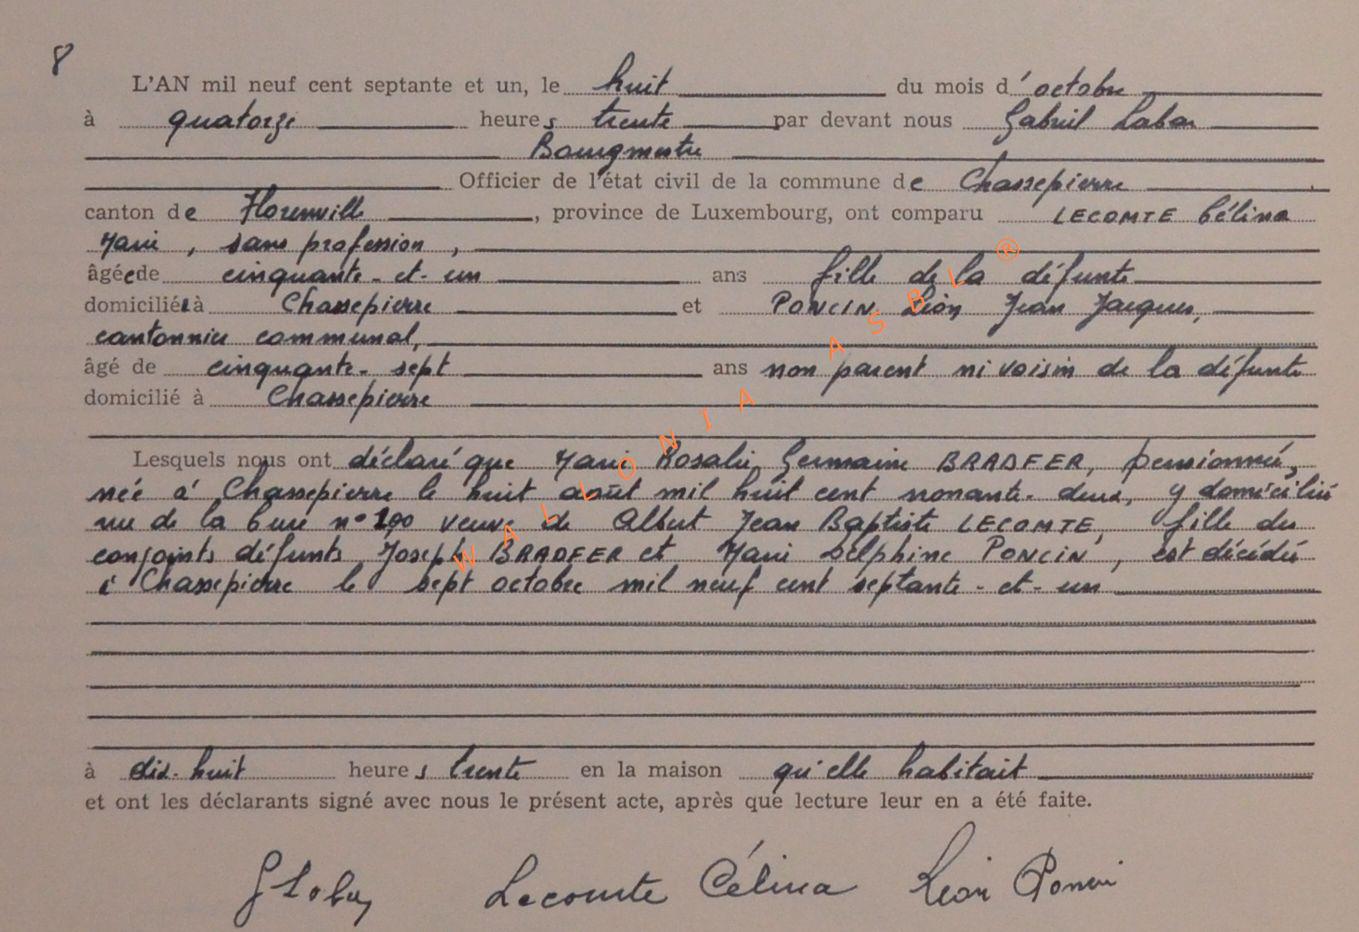 8
L'AN mil neuf cent septante et un, le huit du mois d'octobre
à quatorze heures trente par devant nous Gabriel Labar
Bourgmestre
Officier de l'état civil de la commune de Chassepierre
canton de Florenville, province de Luxembourg, ont comparu LECOMTE Célina
Marie, sans profession,
âgée de cinquante-et-un ans fille de la défunte
domiciliée à Chassepierre et PONCIN Léon Jean Jacques,
cantonnier communal,
âgé de cinquante-sept ans non parent ni voisin de la défunte
domicilié à Chassepierre
Lesquels nous ont déclaré que Marie Rosalie Germaine BRADFER, pensionnée,
née à Chassepierre le huit août mil huit cent nonante-deux, y domiciliée
rue de la Cure n° 100 veuve de Albert Jean Baptiste LECOMTE, fille des
conjoints défunts Joseph BRADFER et Marie Delphine PONCIN, est décédée
à Chassepierre le sept octobre mil neuf cent septante-et-un
à dix-huit heures trente en la maison qu'elle habitait
et ont les déclarants signé avec nous le présent acte, après que lecture leur en a été faite.
Lecomte Célina Léon Poncin
WALLONIA ASBL ®